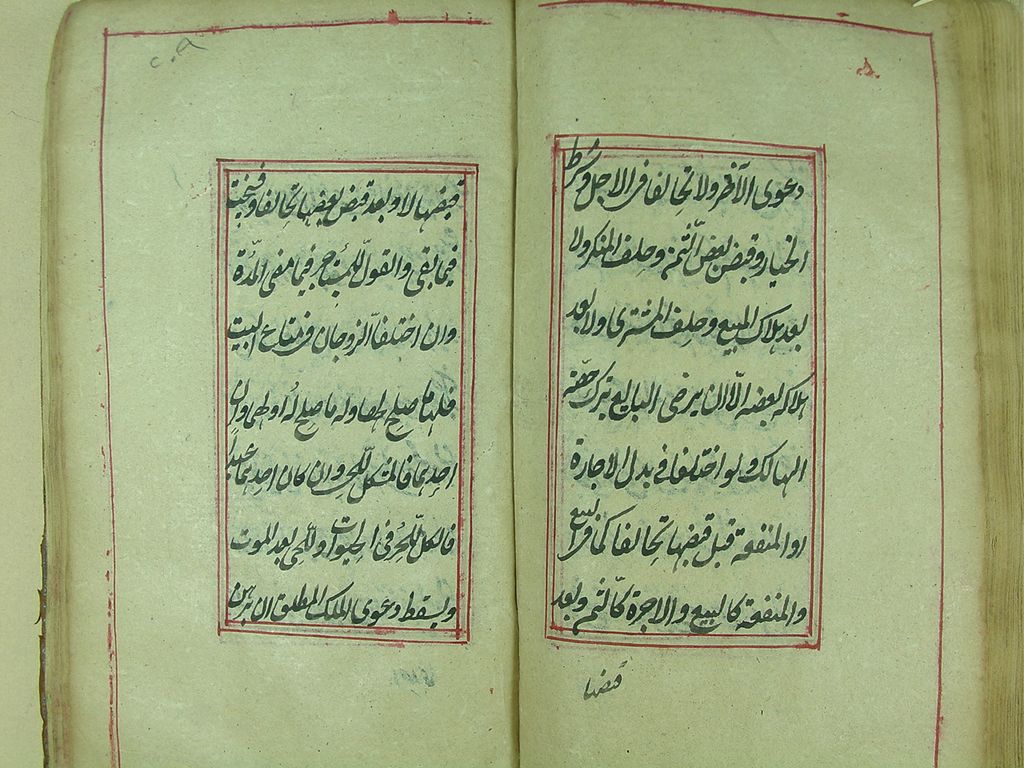 دعوى الآخر ولا تحالفا فى الاجل وشرط
الخيار وقبض بعض الثمن وحلف المنكر ولا
بعد هلاك المبيع وحلف المشترى ولا بعد
هلاكه بعضه الّا ان يرضى البايع بترك حصّته
الهالك ولو اختلفا فى بدل الاجارة
او المنفعة قبل قبضها تحالفا كما فى البيع
والمنفعة كالبيع والاجرة كالثمن وبعد
قبضها
قبضها لا وبعد قبض بعضها تحالفا وفسخت
فيما بقى والقول للمستأجر فيما مضى المدّة
وان اختلفا الزوجان فى متاع البيت
فلها ما صلح لها وله ما صلح له او لهما وان
احدهما فالمشكل للحى وان كان احدهما عبدا
فالكل للحرّ فى الحيوات وللحى بعد الموت
ويسقط دعوى الملك المطلق ان برهن